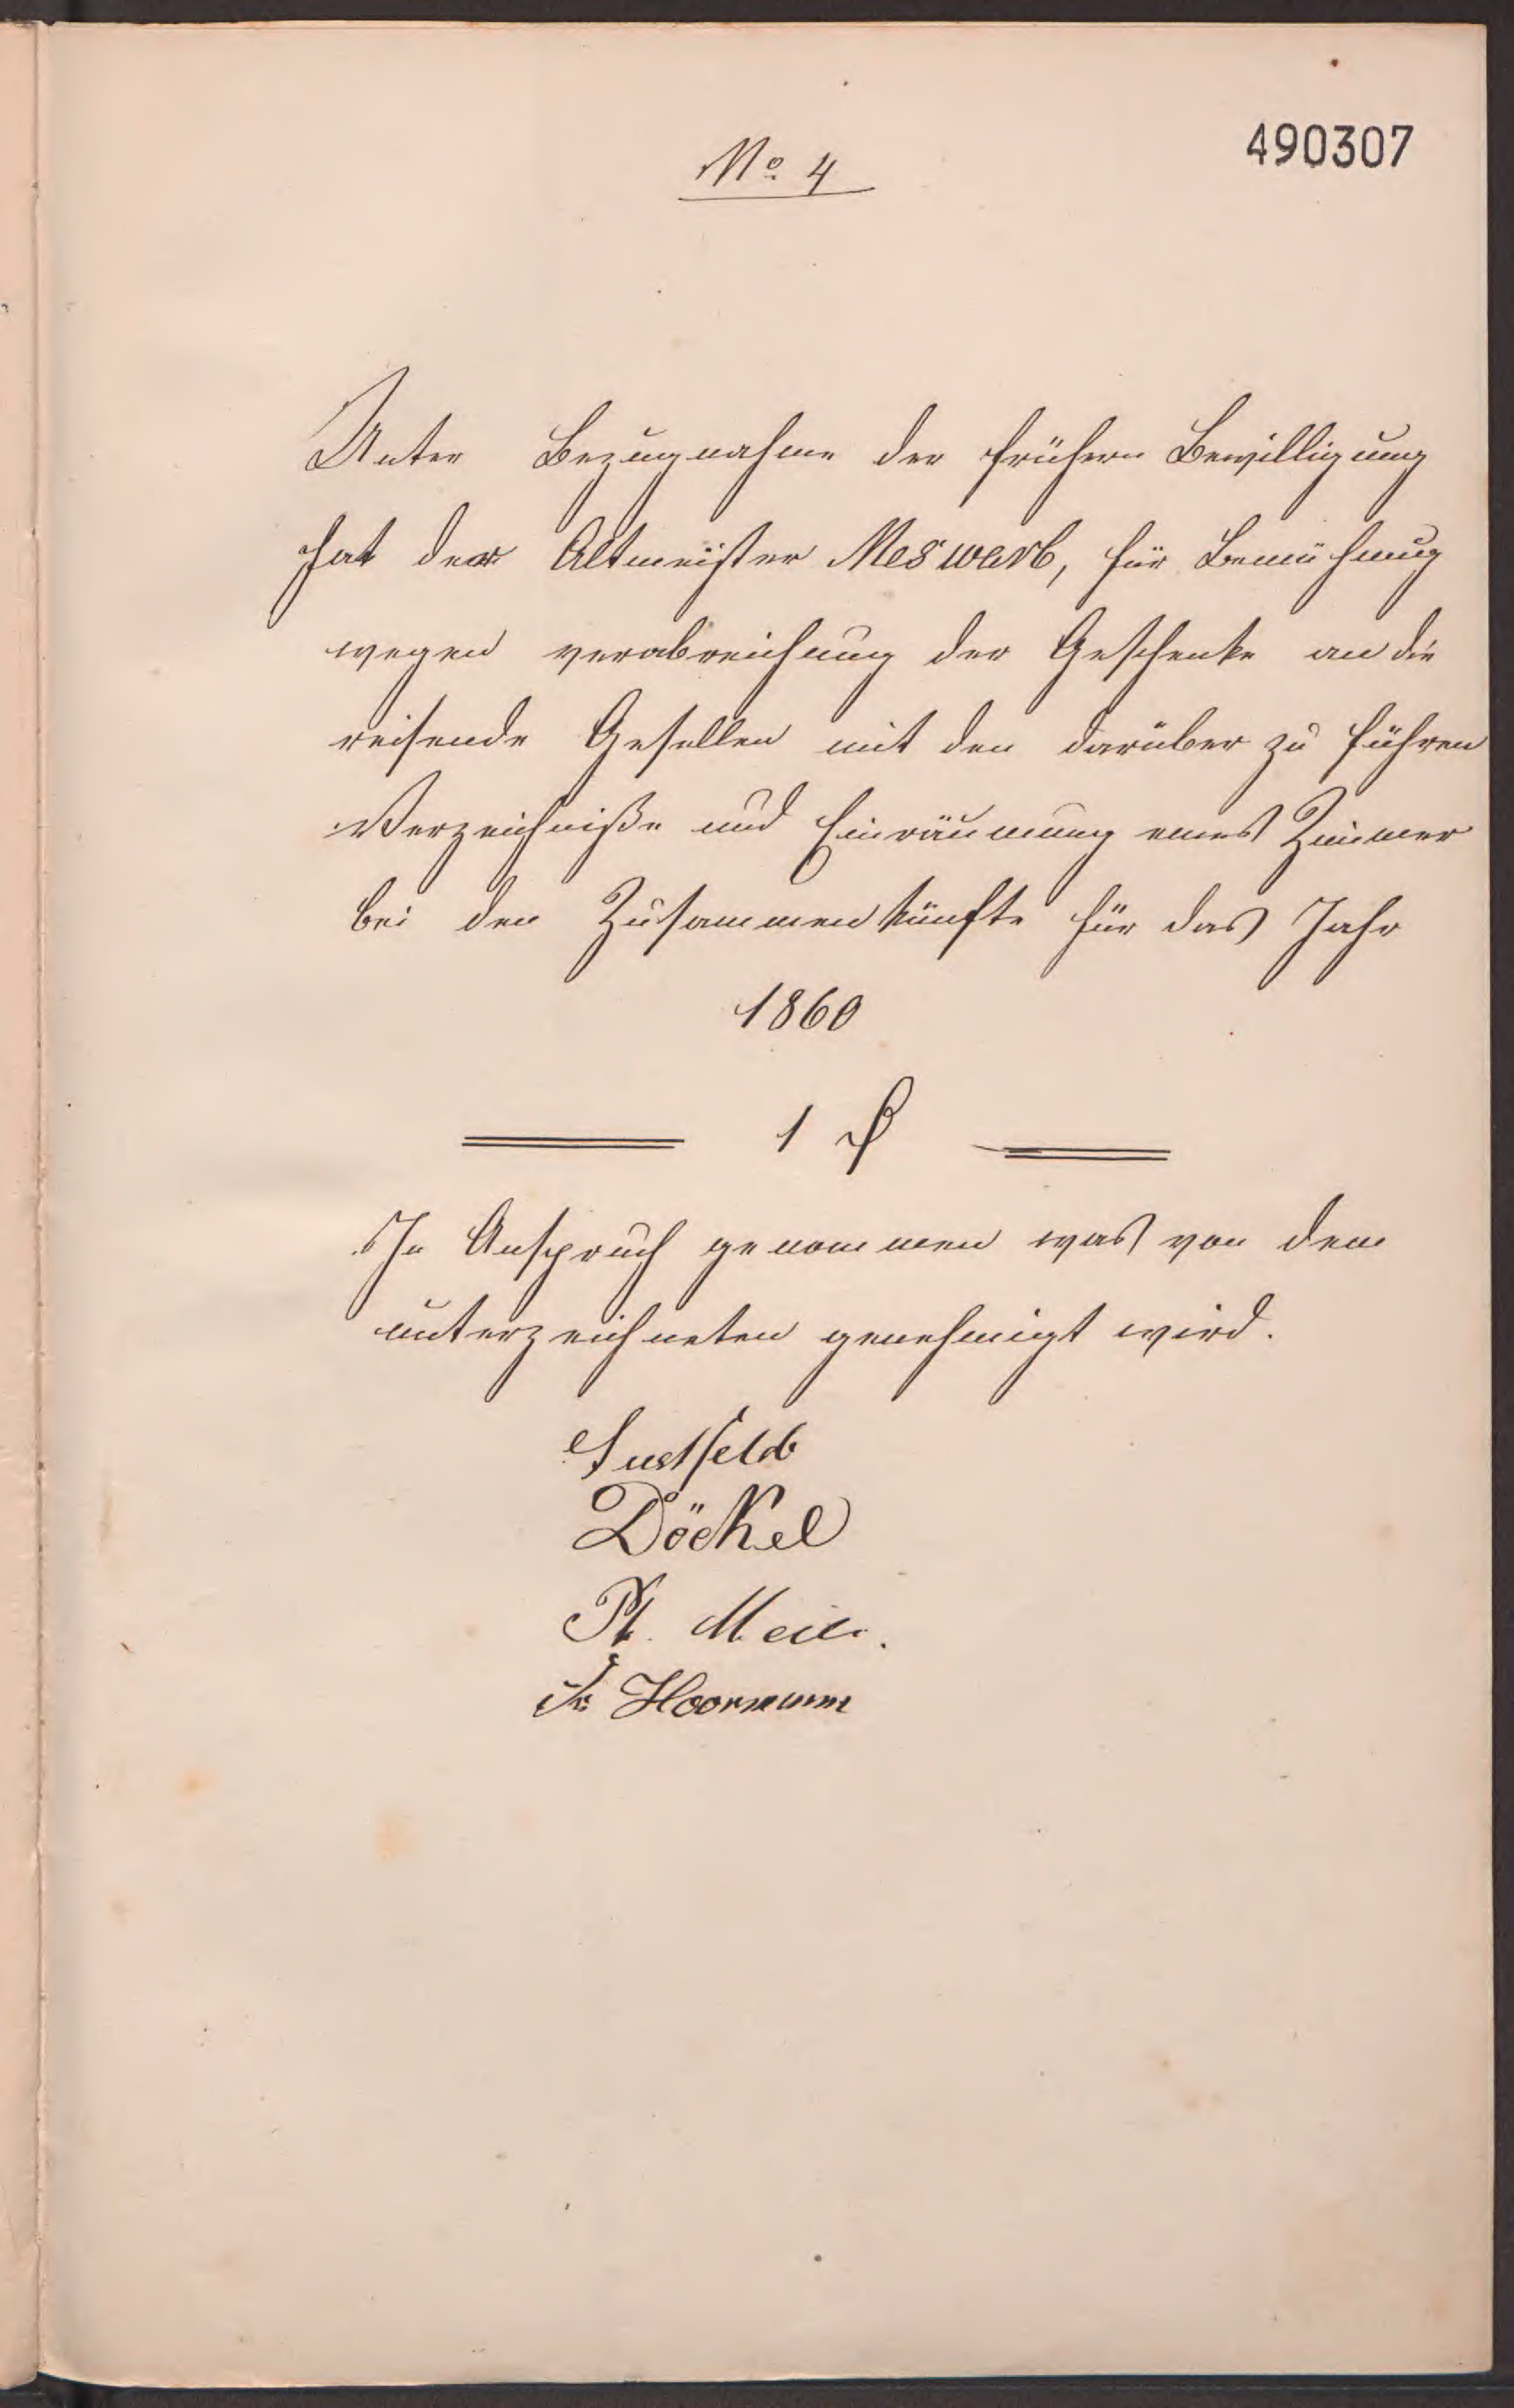 490307
No. 4
Unter Bezugnahme der frühern Bewilligung
hat der Altmeister Meswarb, für Bemühung
wegen verabreichung der Geschenke an die
reisende Gesellen mit den darüber zu führen
Verzeichniße und Einräumung eines Zimmer
bei den Zusammenkünfte für das Jahr
1860
1 ₰
In Anspruch genommen was von dem
unterzeichneten genehmigt wird.
Sustfeld
Döckel
Hoormann